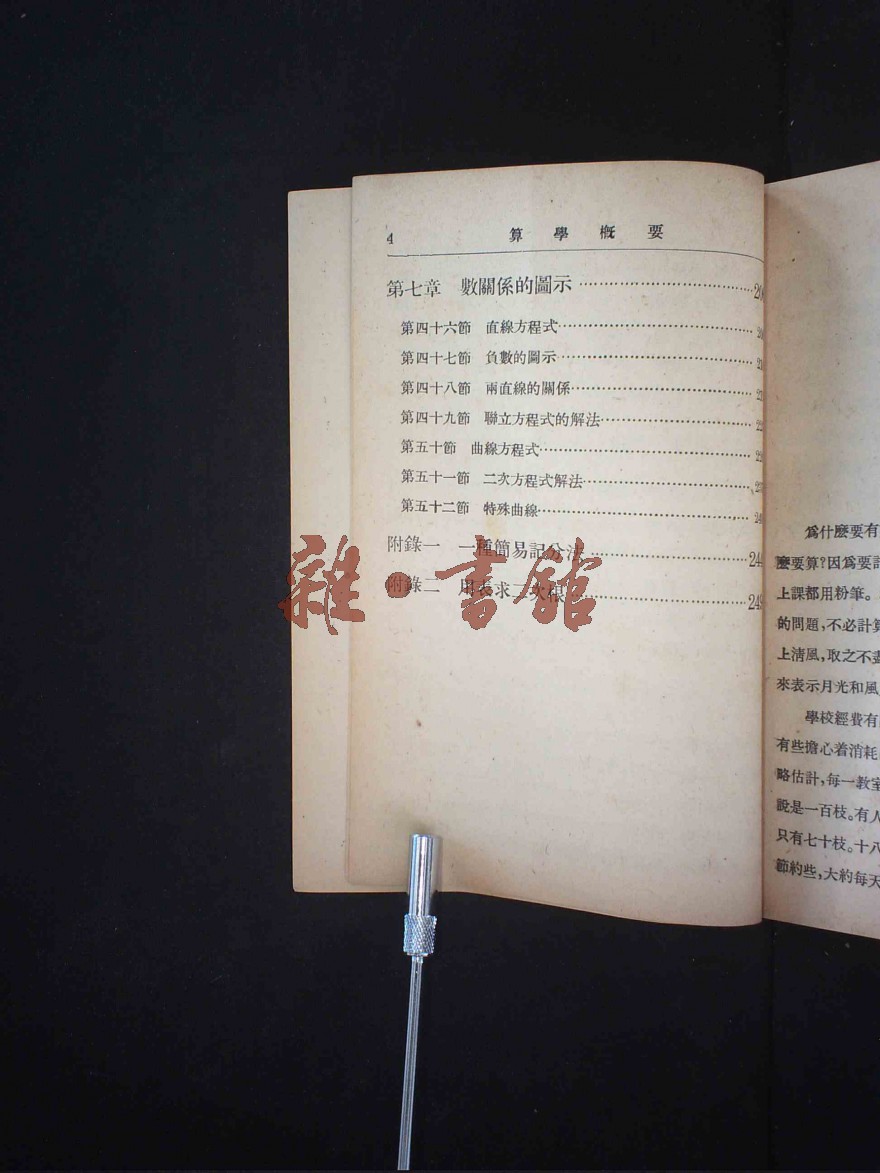 4 算學概要
第七章 數關係的圖示
第四十六節 直線方程式
第四十七節 負數的圖示
第四十八節 兩直線的關係
第四十九節 聯立方程式的解法
第五十節 曲線方程式
第五十一節 二次方程式解法
第五十二節 特殊曲線
附錄一 一種簡易記分法
附錄二 用表求二次根
雜·書館
爲什麼要有
麼要算?因爲要計
上課都用粉筆。
的問題,不必計算
上淸風,取之不盡
來表示月光和風
學校經費有
有些擔心着消耗
略估計,每一敎室
說是一百枝。有人
只有七十枝。十八
節約些,大約每天